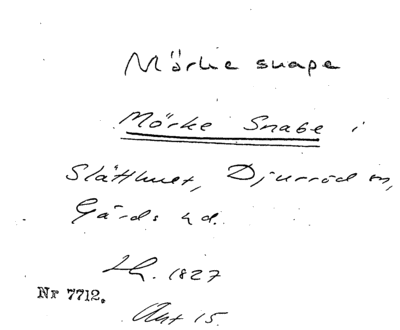 Mörke snape
Mörke Snabe i
Slätthult, Djurröd sn,
Gärds hd.
Lh. 1827
Nr 7712.
Akt 15.